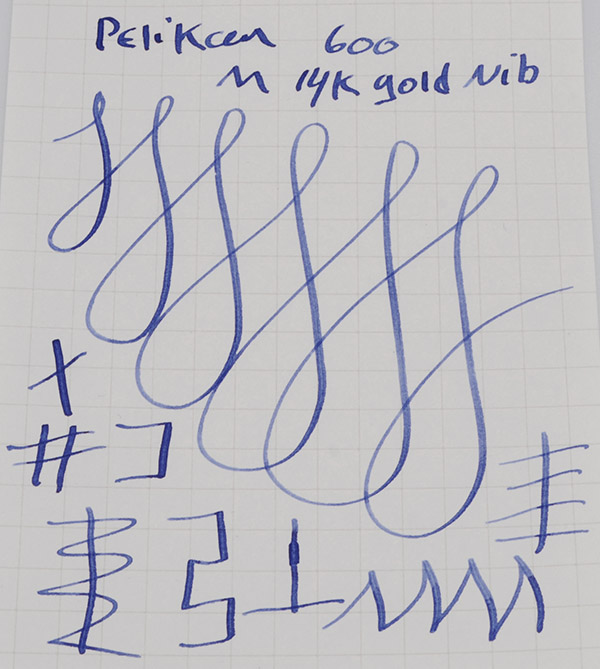 Pelikan 600
M 14K gold Nib